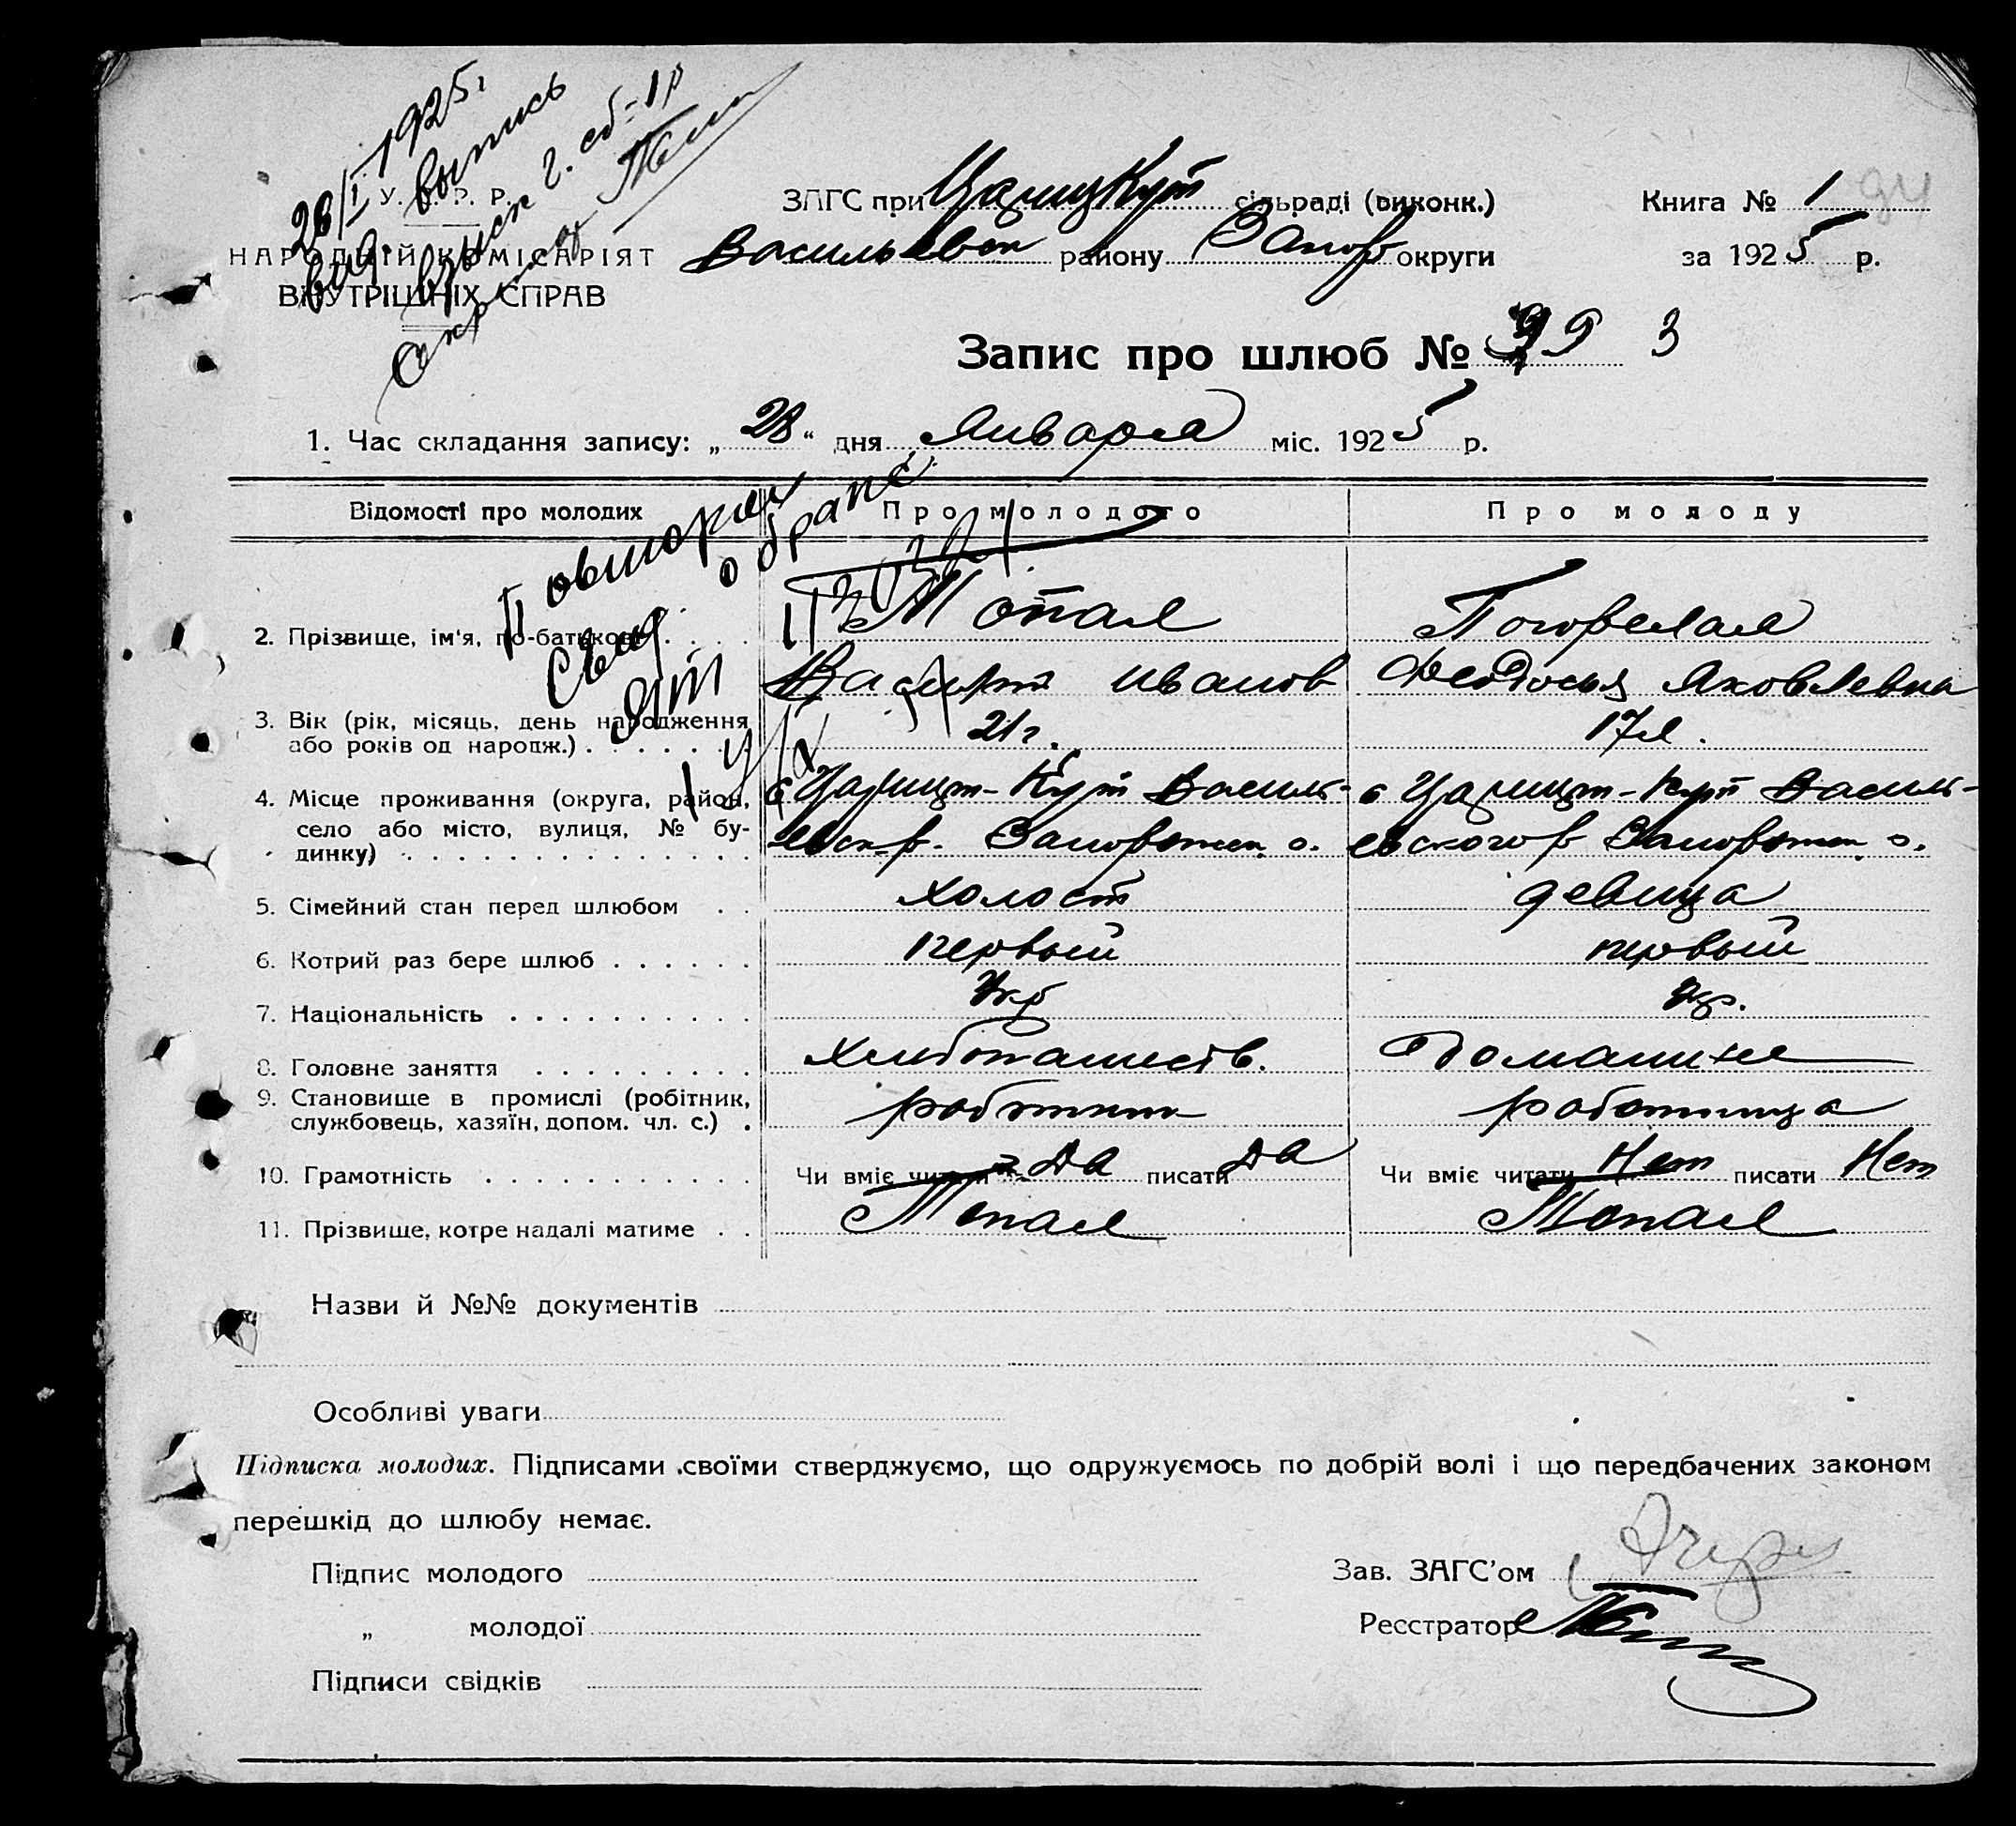 28/I 1925г
вид. выпись
У. С. Р. Р.
НАРОДНІЙ КОМІСАРІЯТ
ВНУТРІШНІХ СПРАВ
ЗАГС при ЦарицКут сільраді (виконк.)
Васильевск району Запор округи
Книга № 1 94
за 1925 р.
Запис про шлюб № 3
1. Час складання запису: „28“ дня Января міс. 1925 р.
Повторно
Свид. о браке
Відомості про молодих Про молодого Про молоду
2. Прізвище, ім'я, по-батькові Топал Погорелая
Иванов Феодосья Яковлевна
3. Вік (рік, місяць, день народження 21 г. 17 л.
або років од народж.)
4. Місце проживання (округа, район, с Царицт-Кут Василь- с Царицт-Кут Василь-
село або місто, вулиця, № бу- евск р. Запорожск. о. евского р Запорожск. о.
динку)
5. Сімейний стан перед шлюбом холост девица
6. Котрий раз бере шлюб первый первый
7. Національність Укр Укр.
8. Головне заняття хлебопашеств. Домашнее
9. Становище в промислі (робітник, работник работница
службовець, хазяїн, допом. чл. с.)
10. Грамотність Чи вміє читати Да писати Да Чи вміє читати Нет писати Нет
11. Прізвище, котре надалі матиме Топал Топал
Назви й №№ документів
Особливі уваги
Підписка молодих. Підписами своїми стверджуємо, що одружуємось по добрій волі і що передбачених законом
перешкід до шлюбу немає.
Підпис молодого Зав. ЗАГС'ом
„ молодої Реєстратор
Підписи свідків